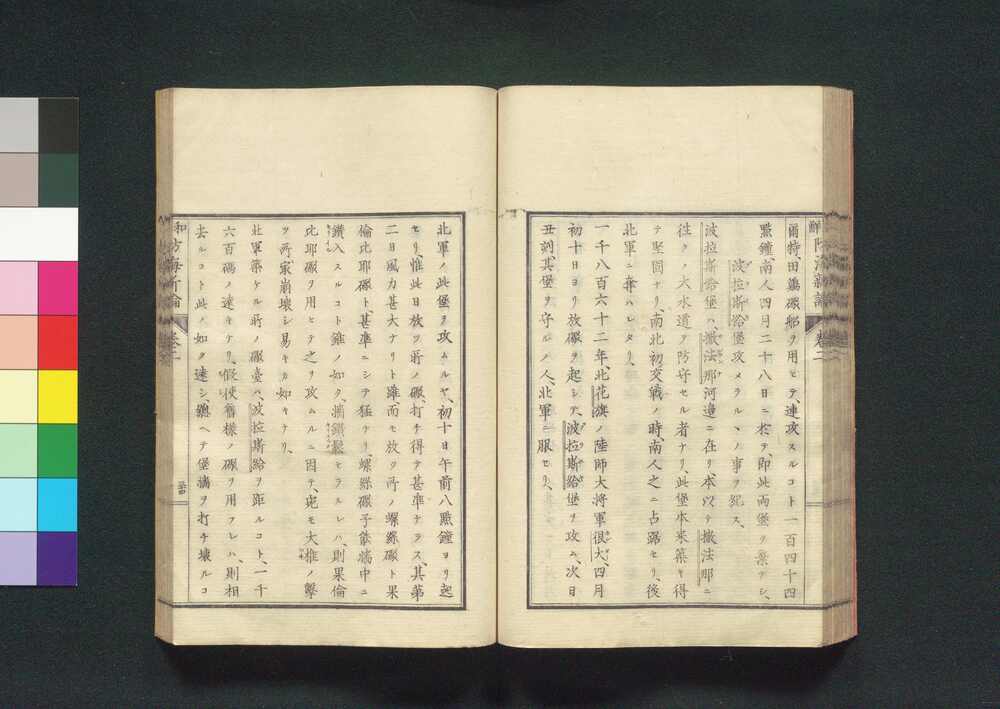 爾特、田鷄礟船ヲ用ヒテ、連攻スルコト一百四十四
點鐘、南人四月二十八日ニ於テ、即此兩堡ヲ棄テシ、
波拉斯給堡攻メラルヽノ事ヲ記ス、
波拉斯給堡ハ、撒法那河邊ニ在リ、本以テ撒法那ニ
往クノ大水道ヲ防守セル者ナリ、此堡本来築キ得
テ堅固ナリ、南北初交戰ノ時、南人之ニ占踞セリ、後
北軍ニ奪ハレタリ、
一千八百六十二年、北花旗ノ陸師大將軍很大、四月
初十日ヨリ放礟ヲ起シテ、波拉斯給堡ヲ攻ム、次日
丑刻、其堡ヲ守ルノ人、北軍ニ服セリ、
北軍ノ此堡ヲ攻ムルヤ、初十日午前八點鐘ヨリ起
セリ、惟此日放ツ所ノ礟、打チ得テ甚準ナラス、其第
二日風力甚大ナリト雖、而モ放ツ所ノ螺絲礟ト果
倫比耶礟ト、甚準ニシテ猛ナリ、螺絲礟子能墻中ニ
鑽入スルコト錐ノ如ク、墻鑽鬆セラルレハ、則果倫
比耶礟ヲ用ヒテ之ヲ攻ムルニ因テ、宛モ大椎ノ擊
ツ所、家崩壞シ易キカ如キナリ、
北軍築ケル所ノ礟臺ハ、波拉斯給ヲ距ルコト、一千
六百碼ノ遠キナリ、假使舊樣ノ礟ヲ用フレハ、則相
去ルコト此ノ如ク遠シ、聽ヘテ堡墻ヲ打チ壞ルコ
防海新論
卷二
防海新論
卷二